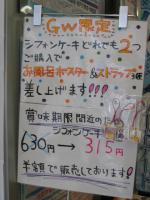 GW限定
シフォンケーキどれでも2つ
ご購入で
お風呂ポスター&ストラップ
差し上げます!!!
賞味期限間近のため
シフォンケーキ
630円→315円
半額で販売しております!